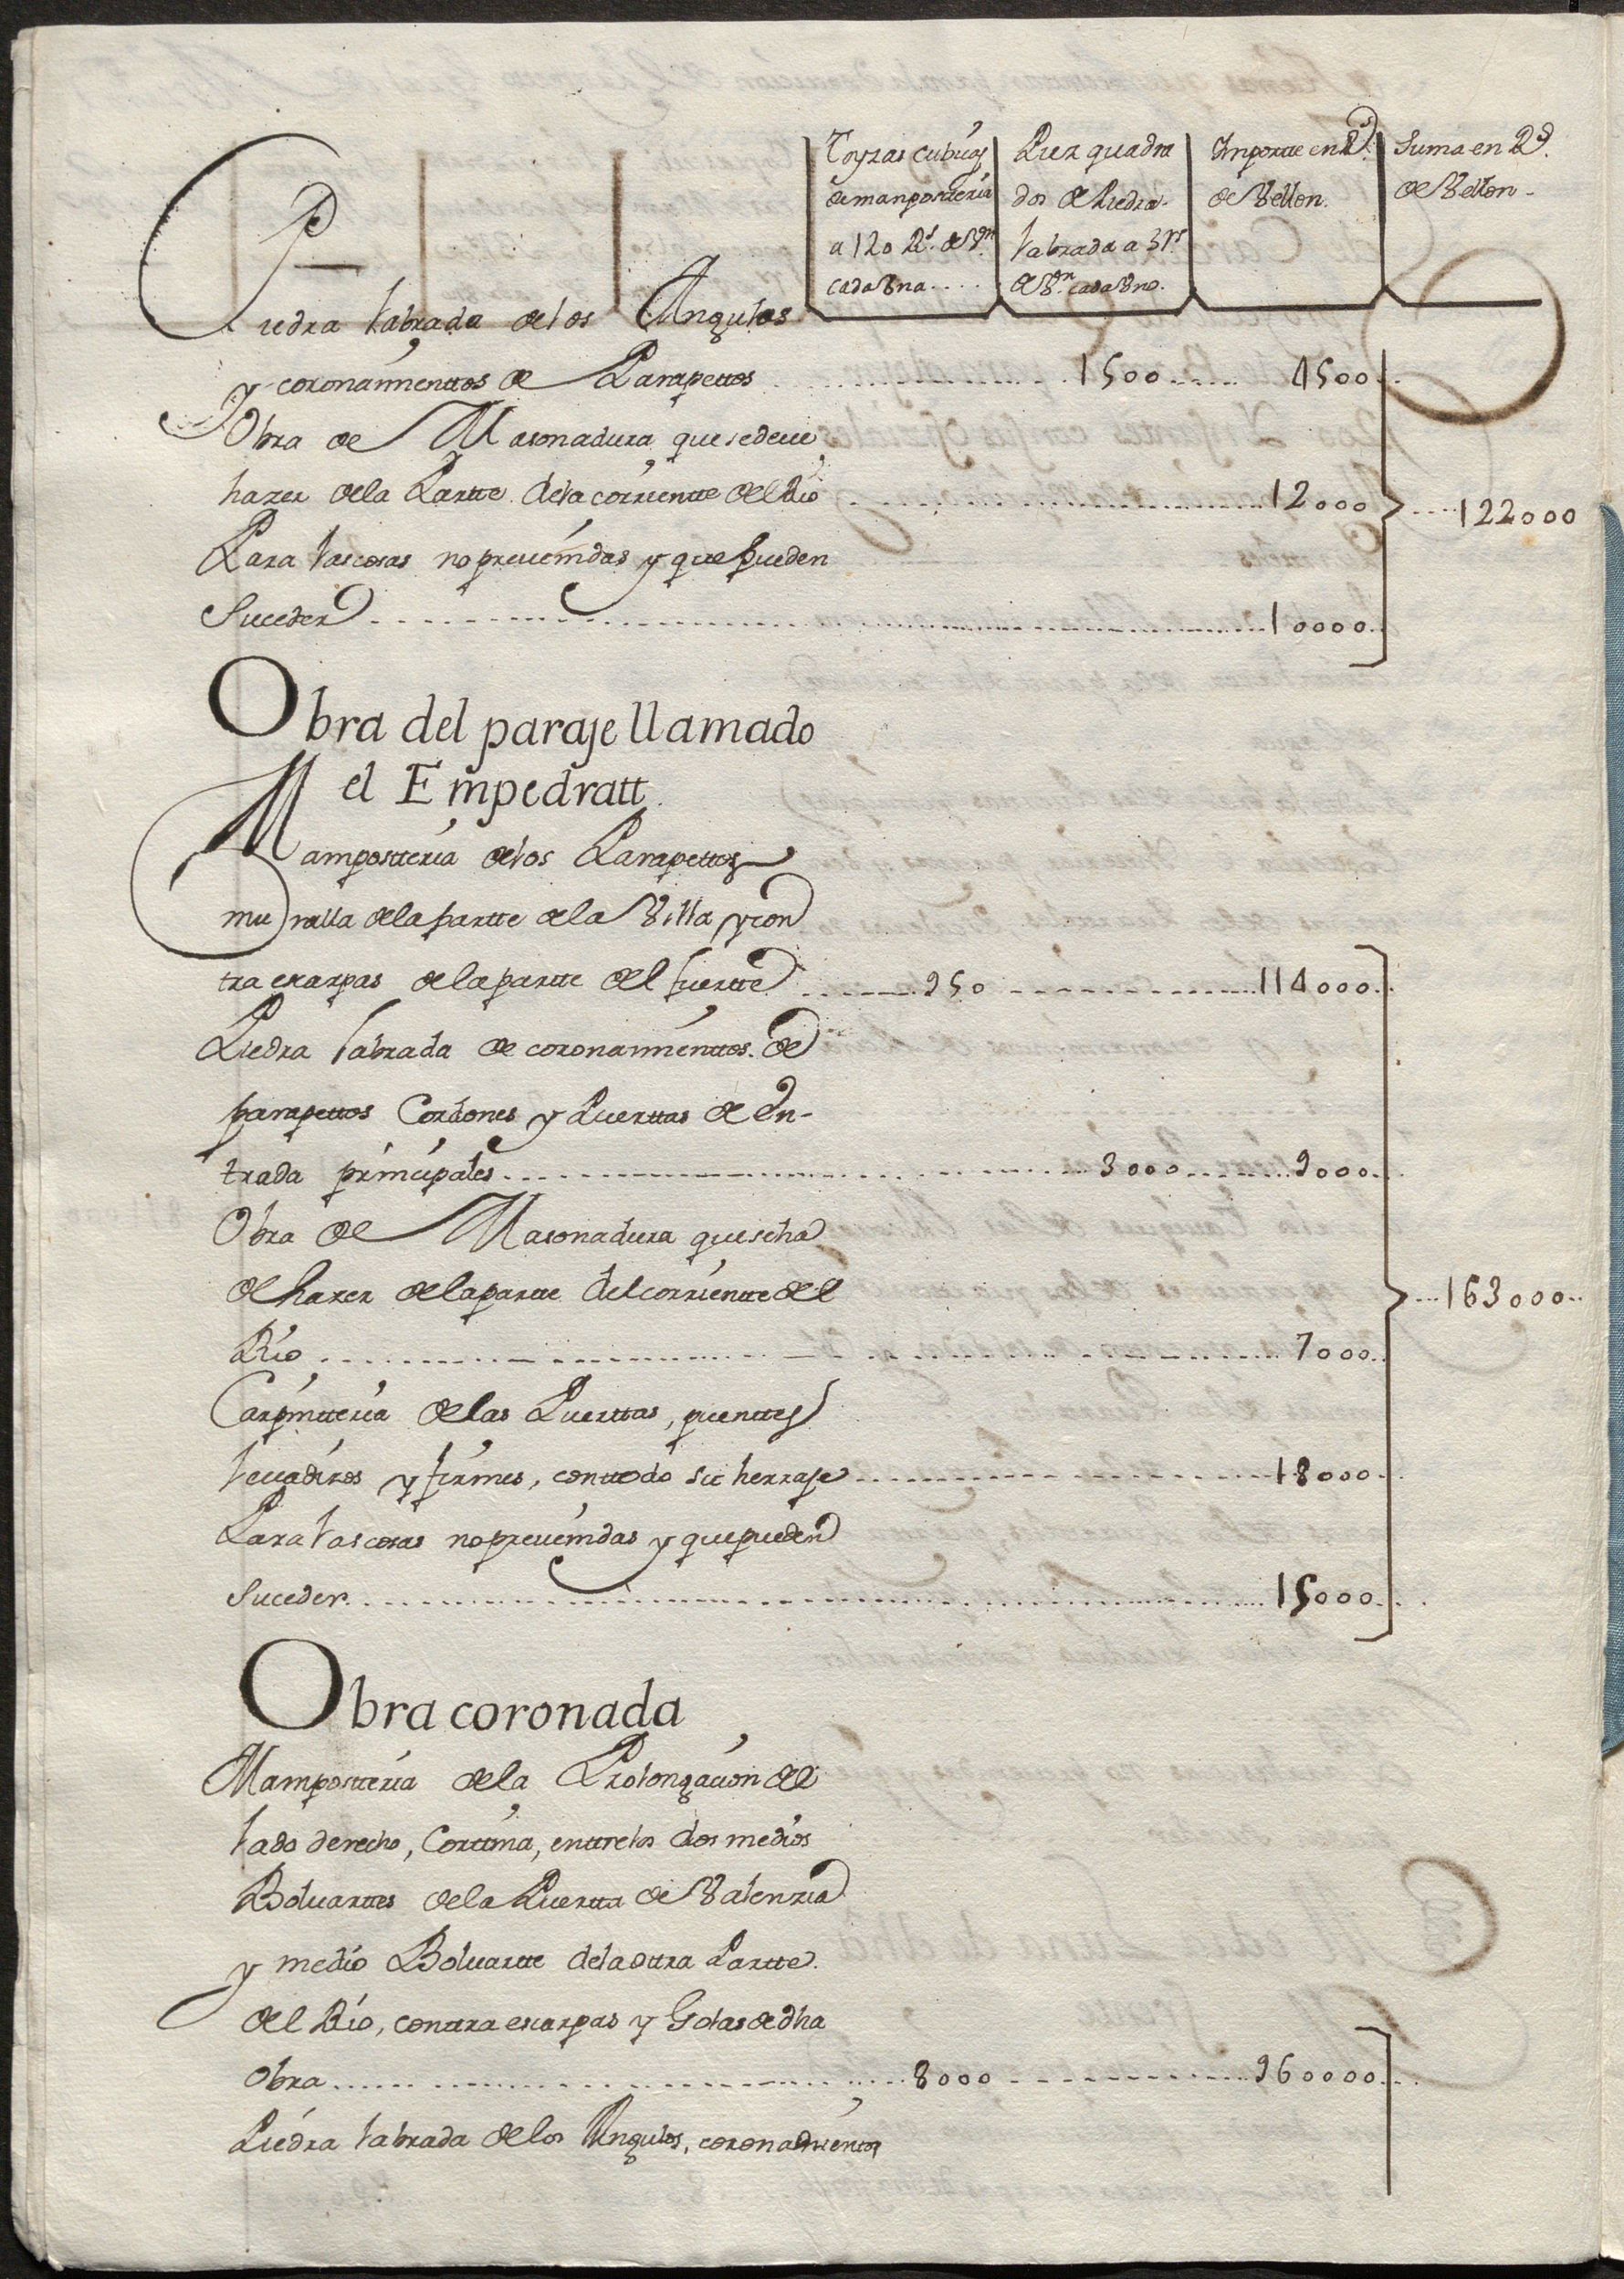 Toyzas cubicas
de mamposteria
a 120 Rs. de Vn.
cada Vna....
Piez quadra
dos de Piedra
labrada a 3 rs
de Vn. cada Vno.
Importe en Rs.
de Vellon.
Suma en Rs.
de Vellon-
Piedra labrada de los Angulos
y coronamienttos de Parapettos ........ 1500 ...... 4500..
Obra de Masonadura que se deue
hazer de la Partte de la corrientte del Rio ........ 12000 .... 122000
Para las cosas no preuenidas y que pueden
Suceder ........ 10000..
Obra del paraje llamado
el Empedratt.
Mampostteria de los Parapettos
muralla de la partte de la Villa y con
tra escarpas de la partte del fuertte ........ 950 ........ 114000..
Piedra labrada de coronamienttos. de
parapettos Cordones y Puerttas de En-
trada principales ........ 3000 ........ 9000..
Obra de Masonadura que se ha
de hazer de la partte del corrientte del .... 163000..
Rio ........ 7000..
Carpintteria de las Puerttas, puenttes
leuadizos y firmes, con ttodo su herraje ........ 18000..
Para las cosas no preuenidas y que pueden
Suceder. ........ 15000....
Obra coronada
Mampostteria de la Prolongacion del
lado derecho, Corttina, enttre los dos medios
Boluarttes de la Puertta de Valenzia
y medio Boluartte de la ottra Partte.
del Rio, conttra escarpas y Golas de dha
Obra ........ 8000 ........ 960000....
Piedra labrada de los Angulos, coronamientos